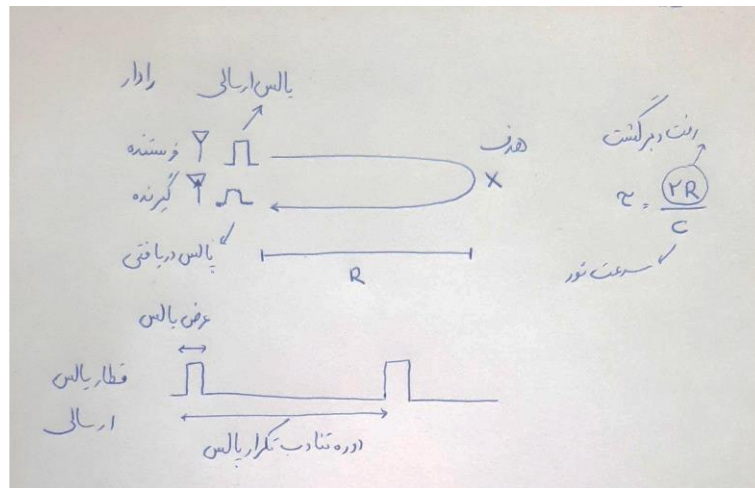 رادار
پالس ارسالی
فرستنده
گیرنده
پالس دریافتی
هدف
X
R
رفت و برگشت
τ = ۲R / C
سرعت نور
عرض پالس
قطار پالس
ارسالی
دوره تناوب تکرار پالس